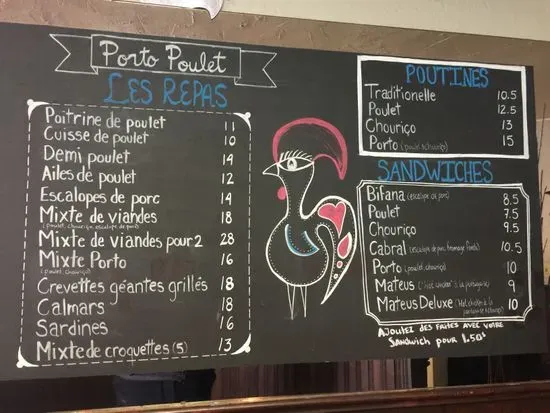 Porto Poulet
LES REPAS
Poitrine de poulet 11
Cuisse de poulet 10
Demi poulet 14
Ailes de poulet 12
Escalopes de porc 14
Mixte de viandes 18
(poulet, chouriço, escalope de porc)
Mixte de viandes pour 2 28
Mixte Porto 16
(poulet, chouriço)
Crevettes géantes grillés 18
Calmars 18
Sardines 16
Mixte de croquettes (5) 13
POUTINES
Traditionelle 10.5
Poulet 12.5
Chouriço 13
Porto (poulet, chouriço) 15
SANDWICHES
Bifana (escalope de porc) 8.5
Poulet 7.5
Chouriço 9.5
Cabral (escalope de porc, fromage fondu) 10.5
Porto (poulet, chouriço) 10
Mateus ("hot chicken" à la portugaise) 9
Mateus Deluxe (Hot chicken à la 10
portugaise + chouriço)
AJOUTEZ DES FRITES AVEC VOTRE
SANDWICH POUR 1.50$